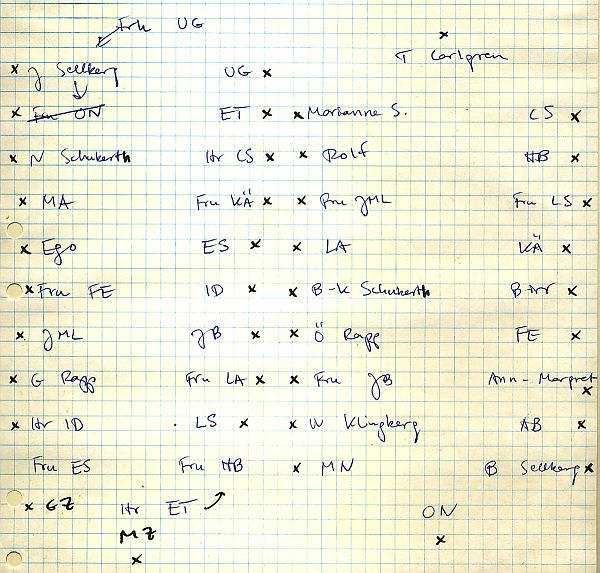 Frk UG
T Carlgren
J Sellberg UG
Fru ON ET Marianne S. CS
N Schukerth Hr CS Rolf HB
MA Fru KÄ Fru JML Fru LS
Ego ES LA KÄ
Fru FE ID B-K Schukerth B Hr
JML JB Ö Rapp FE
G Rapp Fru LA Fru JB Ann-Margret
Hr ID LS W Klingberg AB
Fru ES Fru HB MN B Sellberg
GZ Hr ET ON
MZ